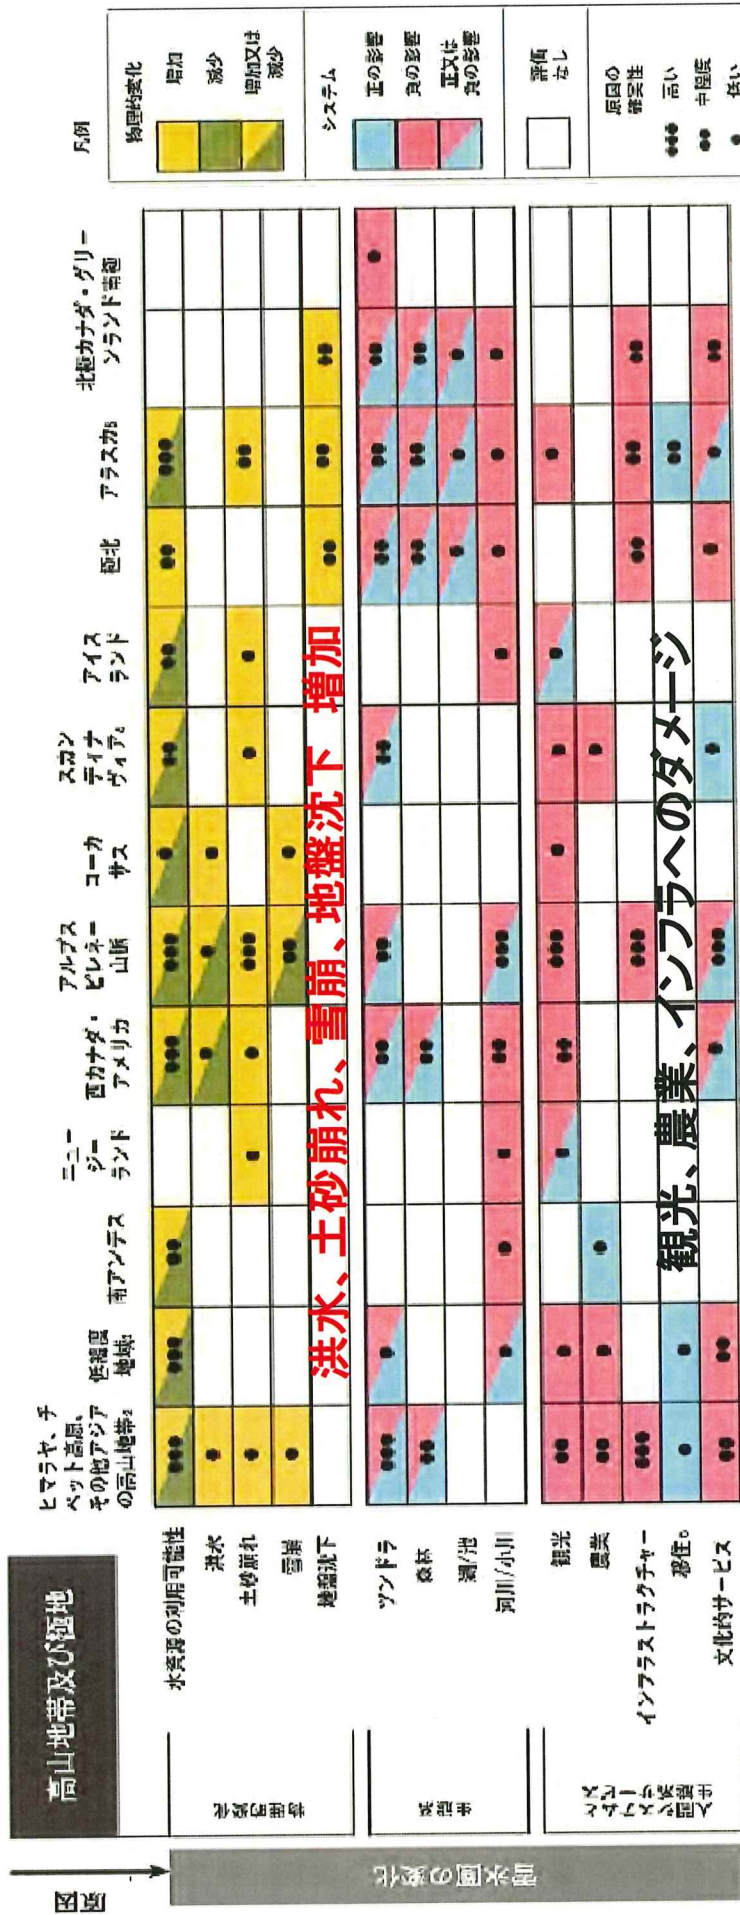 原因
雪氷圏の変化
高山地帯及び極地
ヒマラヤ、チ
ベット高原、
その他アジア
の高山地帯2
低緯度
地域1
南アンデス
ニュー
ジー
ランド
西カナダ・
アメリカ
アルプス
ピレネー
山脈
コーカ
サス
スカン
ディナ
ヴィア4
アイス
ランド
極北
アラスカ5
北極カナダ・グリー
ンランド南極
物理的変化
水資源の利用可能性
洪水
土砂崩れ
雪崩
地盤沈下
洪水、土砂崩れ、雪崩、地盤沈下 増加
生態系
ツンドラ
森林
湖/池
河川/小川
人間シス
テムと
生態系
サービス
観光
農業
インフラストラクチャー
移住6
文化的サービス
観光、農業、インフラへのダメージ
凡例
物理的変化
増加
減少
増加又は
減少
システム
正の影響
負の影響
正又は
負の影響
評価
なし
原因の
確実性
高い
中程度
低い